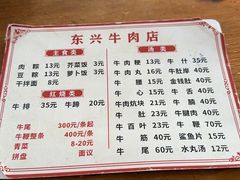 东兴牛肉店
主食类
汤类
肉粽 13元 芥菜饭 3元
豆粽 13元 萝卜饭 3元
干拌面 8元
红烧类
牛排 35元 牛蹄 20元
牛尾 300元/条起
牛鞭整条 400元/条
青菜 8-20元
拼盘 面议
牛肉粳 13元 牛什 35元
牛肉丸 16元 牛肚岸 40元
牛腰 35元 金钱肚 40元
牛心 35元 牛舌 40元
牛肉炕块 35元 牛肚 40元
牛肚 35元 牛腩 40元
牛百叶 23元 牛鞭 70元
牛筋 40元 鲨鱼片 15元
牛尾 60元 水丸汤 12元